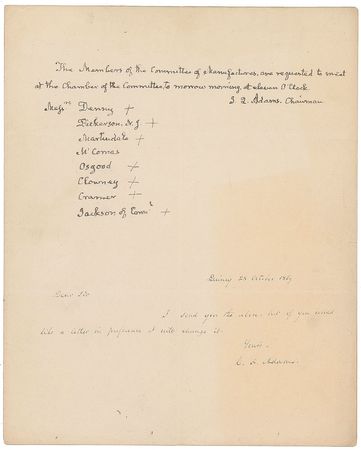 The Members of the Committee of Manufactures, are requested to meet
at the Chamber of the Committee, to morrow morning, at eleven O'Clock
J. Q. Adams. Chairman
Messrs Denny +
Dickerson. N. J +
Martindale +
McComas
Osgood +
Clowney +
Cramer +
Jackson of Connt +
Quincy 28 October 1869
Dear Sir
I send you the above, but if you would
like a letter in preference I will change it.
Yours.
C. F. Adams.